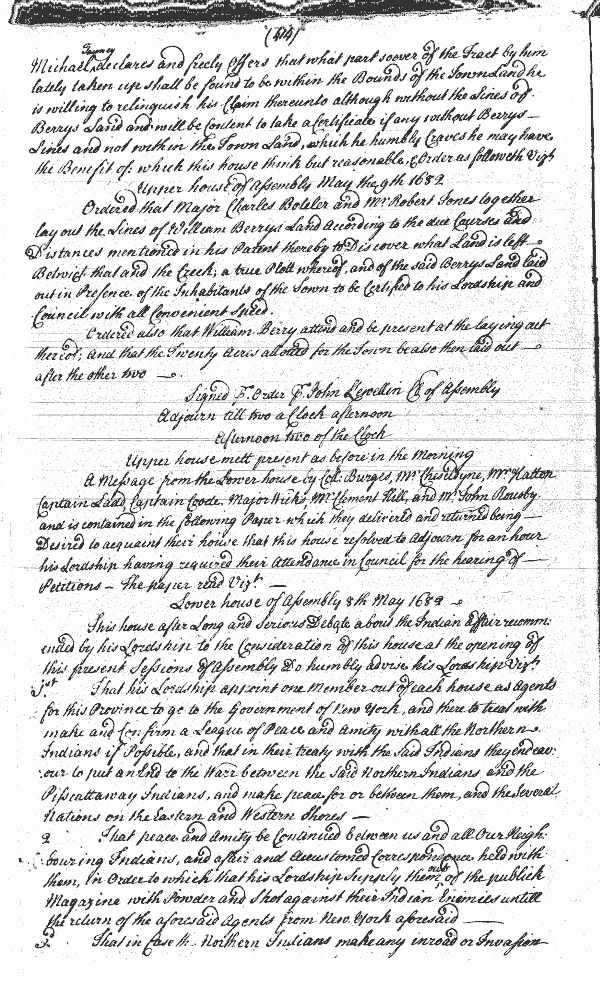 (44)
Michael Tawney declares and freely Offers that what part soever of the Tract by him
lately taken up shall be found to be within the Bounds of the Town Land he
is willing to relinquish his Claim thereunto although without the Lines of
Berrys Land and will be Content to take a Certificate if any without Berrys
Lines and not within the Town Land, which he humbly Craves he may have
the Benefit of: which this house think but reasonable, & Order as followeth Vizt
Upper house of Assembly May the 9th 1682
Ordered that Major Charles Boteler and Mr Robert Jones together
lay out the Lines of William Berrys Land According to the due Courses and
Distances mentioned in his Patent thereby to Discover what Land is left
Betwixt that and the Creek; a true Plott whereof, and of the said Berrys Land laid
out in Presence of the Inhabitants of the Town to be Certifed to his Lordship and
Council with all Convenient Speed.
Ordered also that William Berry attend and be present at the laying out
thereof; and that the Twenty Acres allotted for the Town be also then laid out
after the other two
Signed P. Order P. John Lewellin Cl of Assembly
Adjourn till two a Clock afternoon
Afternoon two of the Clock
Upper house mett present as before in the Morning
A Message from the Lower house by Coll. Burges, Mr Cheseldyne, Mr Hatton
Captain Ladd, Captain Coode, Major Wicks, Mr Clement Hill, and Mr John Rousby
and is contained in the following Paper which they delivered and returned being
Desired to acquaint their house that this house resolved to Adjourn for an hour
his Lordship having required their Attendance in Council for the hearing of
Petitions – The paper read Vizt
Lower house of Assembly 8th May 1682
This house after Long and Serious Debate about the Indian Affair recomm:
ended by his Lordship to the Consideration of this house at the opening of
this present Sessions of Assembly Do humbly advise his Lordship Vizt
1st. That his Lordship appoint one Member out of each house as Agents
for this Province to go to the Government of New York, and there to treat with
make and Confirm a League of Peace and Amity with all the Northern
Indians if Possible, and that in their treaty with the Said Indians they endeav:
our to put an End to the Warr between the Said Northern Indians and the
Piscattaway Indians, and make peace for or between them, and the Several
Nations on the Eastern and Western Shores
2 That peace and Amity be Continued between us and all Our Neigh:
bouring Indians, and a fair and Accustomed Correspondence held with
them, in Order to which that his Lordship Supply them out of the publick
Magazine with Powder and Shot against their Indian Enemies untill
the return of the aforesaid Agents from New York aforesaid
3d. That in Case the Northern Indians make any inroad or Invasion